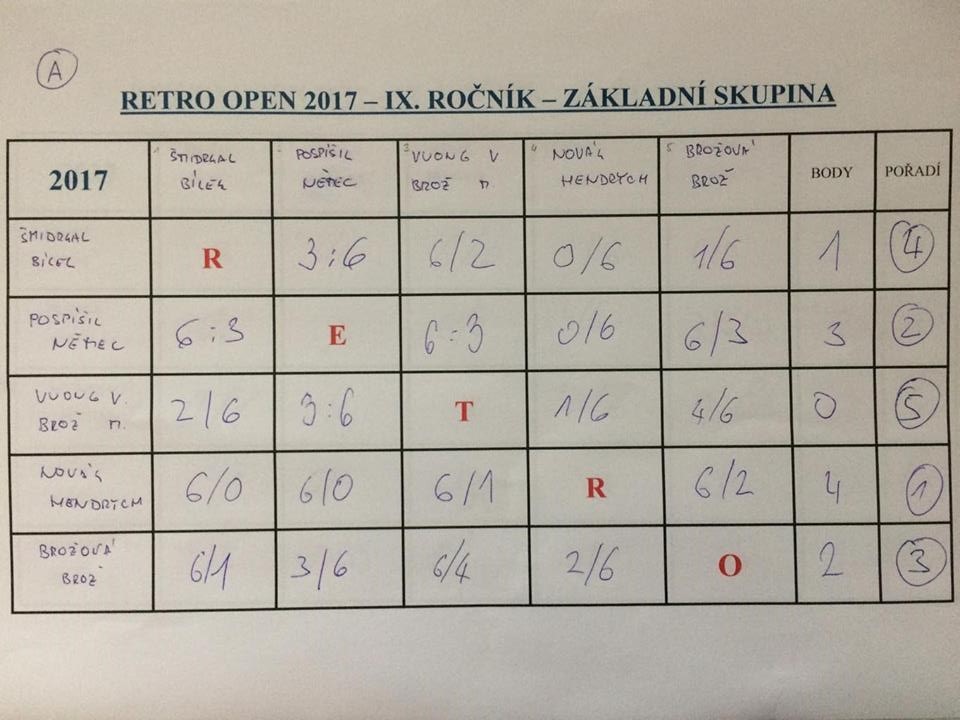 A
RETRO OPEN 2017 – IX. ROČNÍK – ZÁKLADNÍ SKUPINA
2017 1 ŠMIDRGAL BÍLEK POSPÍŠIL NĚMEC 3 VUONG V. BROŽ M. 4 NOVÁK HENDRYCH 5 BROŽOVÁ BROŽ BODY POŘADÍ
ŠMIDRGAL BÍLEK R 3:6 6/2 0/6 1/6 1 4
POSPÍŠIL NĚMEC 6:3 E 6:3 0/6 6/3 3 2
VUONG V. BROŽ M. 2/6 3:6 T 1/6 4/6 0 5
NOVÁK HENDRYCH 6/0 6/0 6/1 R 6/2 4 1
BROŽOVÁ BROŽ 6/1 3/6 6/4 2/6 O 2 3